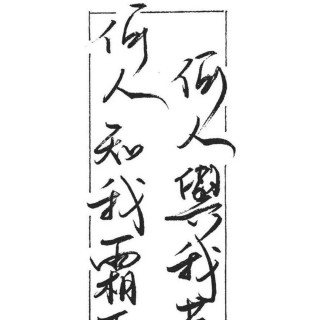 何人與我
何人知我霜